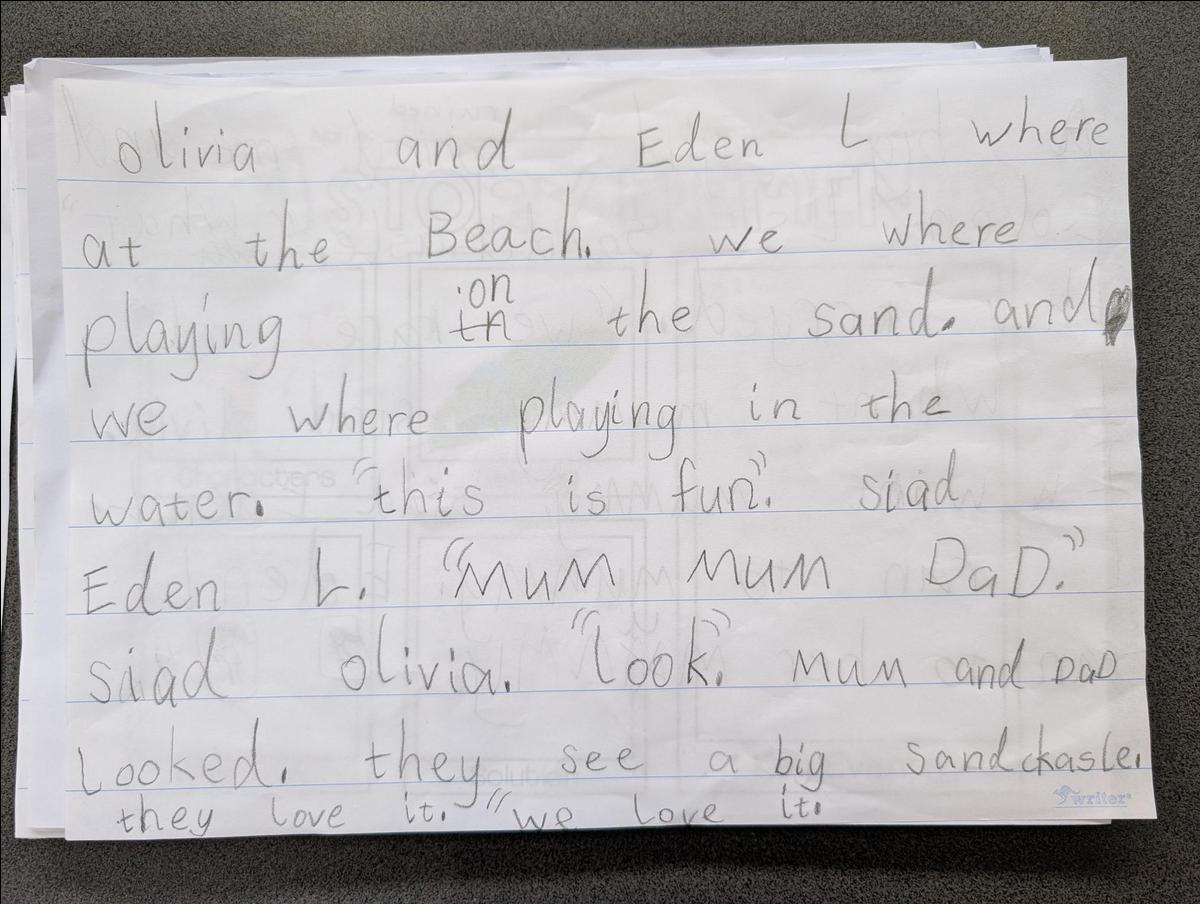 olivia and Eden L where
at the Beach. we where
on
playing in the sand. and
we where playing in the
water. "this is fun". siad
Eden L. "MuM MuM DaD."
siad olivia. "look." MuM and DaD
Looked. they see a big sandckasle.
they love it. "we love it.
writer